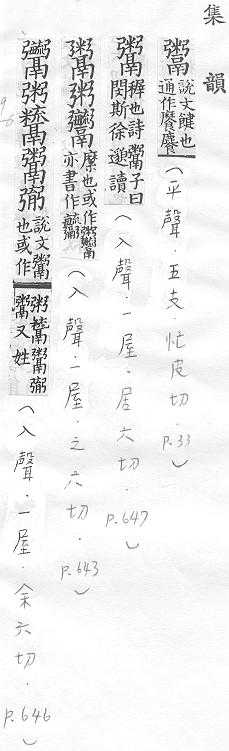 集韻
鬻 說文鍵也通作糜 (平聲.五支.忙皮切.P.33)
鬻 稺也詩鬻子曰閔斯徐邈讀 (入聲.一屋.居六切.P.647)
粥鬻 糜也或作 亦書作 (入聲.一屋.之六切.P.643)
鬻粥 說文鬻也或作 粥 鬻又姓 (入聲.一屋.余六切.P.646)